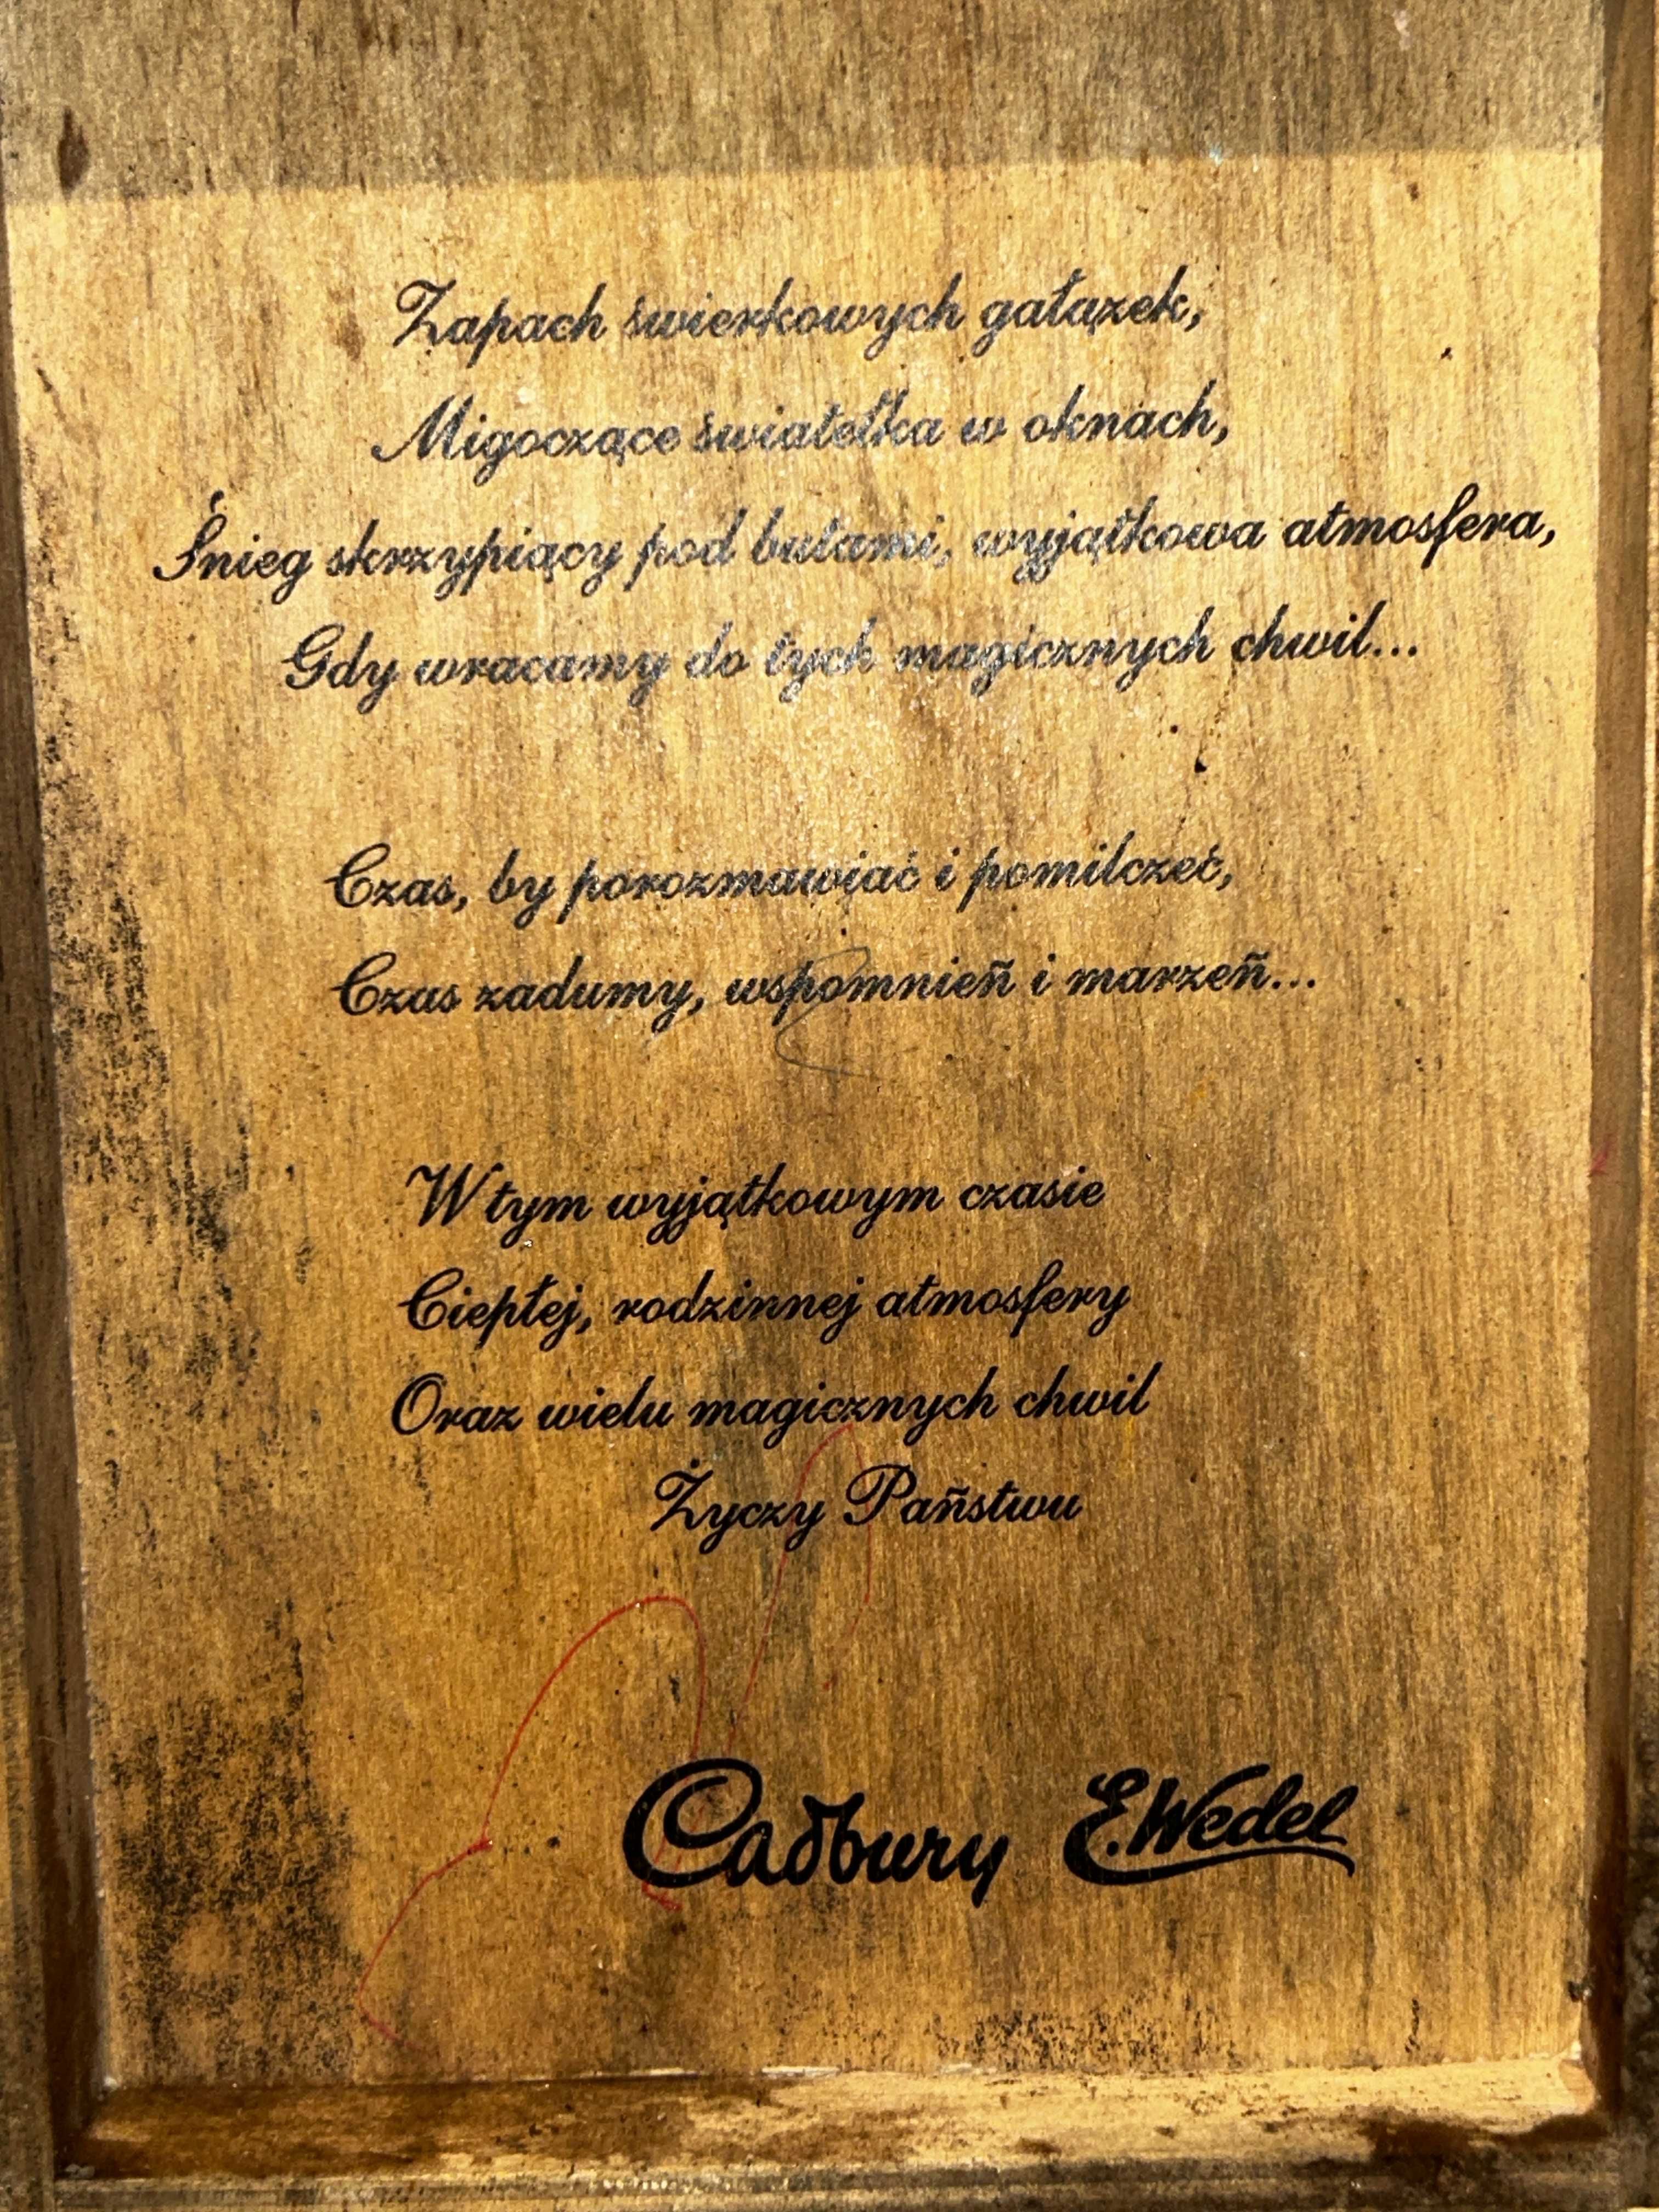 Zapach świerkowych gałązek,
Migoczące światełka w oknach,
Śnieg skrzypiący pod butami, wyjątkowa atmosfera,
Gdy wracamy do tych magicznych chwil...
Czas, by porozmawiać i pomilczeć,
Czas zadumy, wspomnień i marzeń...
W tym wyjątkowym czasie
Ciepłej, rodzinnej atmosfery
Oraz wielu magicznych chwil
Życzy Państwu
Cadbury E.Wedel